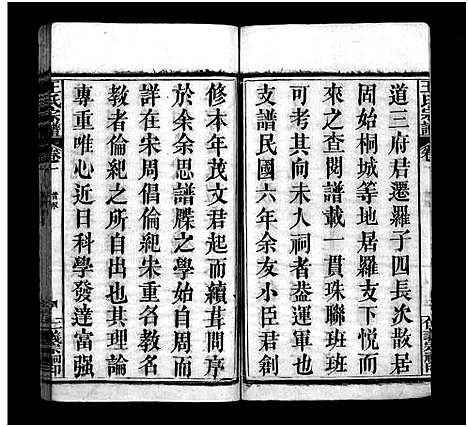 道三府君遷羅子四長次散居
固始桐城等地居羅支下悅而
來之查閱譜載一貫珠聯班班
可考其向未入祠者蓋運軍也
支譜民國六年余友小臣君創
修本年茂文君起而續葺問序
於余余思譜牒之學始自周而
詳在宋周倡倫紀宋重名教名
教者倫紀之所自出也其理論
專重唯心近日科學發達富強
王氏宗譜
卷一